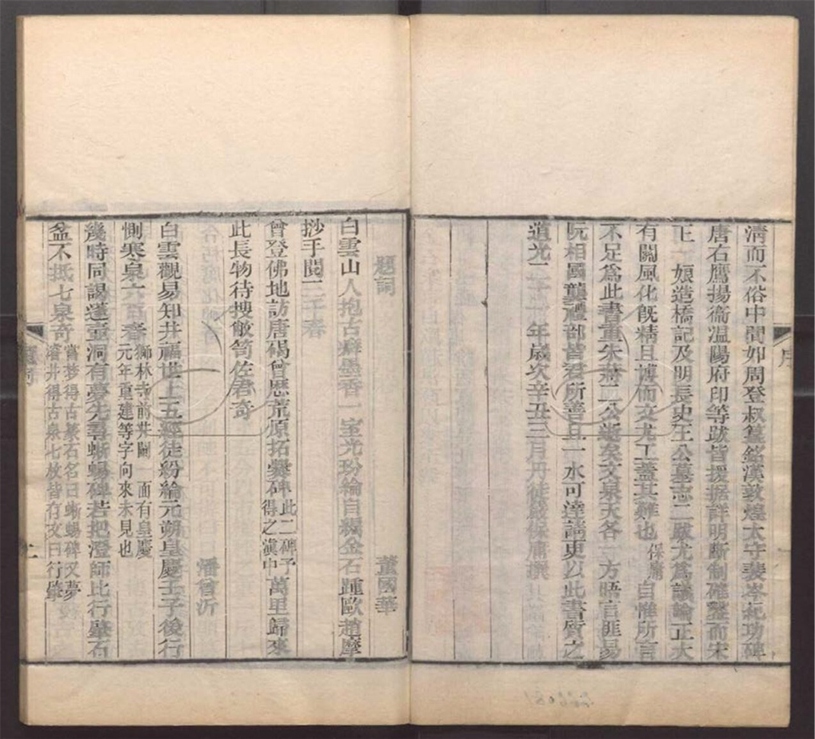 清而不俗中間如周登叔簋銘漢敦煌太守裴岑紀功碑
唐右鷹揚衞溫陽府印等跋皆援据詳明斷制確鑿而宋
王二娘造橋記及明長史王公墓志二跋尤爲議論正大
有關風化旣精且博而文尤工蓋其難也保庸自惟所言
不足爲此書重朱蔣二公逝矣文泉天各一方晤言匪易
阮相國龔禮部皆君所善且一水可達請更以此書質之
道光二十一年歲次辛丑三月丹徒嚴保庸撰
序
題詞
董國華
白雲山人抱古癖墨香一室光紛綸自糊金石踵歐趙摩
抄于閱二千春
曾登佛地訪唐碣曾歷荒原拓爨碑此二碑予
得之滇中萬里歸來
此長物待搜敝笥佐君奇
潘曾沂
白雲觀易知井福世上五經徒紛綸元朔皇慶壬子後行
惻寒泉六百春獅林寺前井闌一面有皇慶
元年重建等字向來未見也
幾時同謁蓬壺洞有夢先尋蜥蜴碑若把澄師比行肇石
盆不抵七泉奇嘗夢得古篆石名曰蜥蜴碑又夢
濬井得古泉七枚皆有文曰行肇
題詞
一